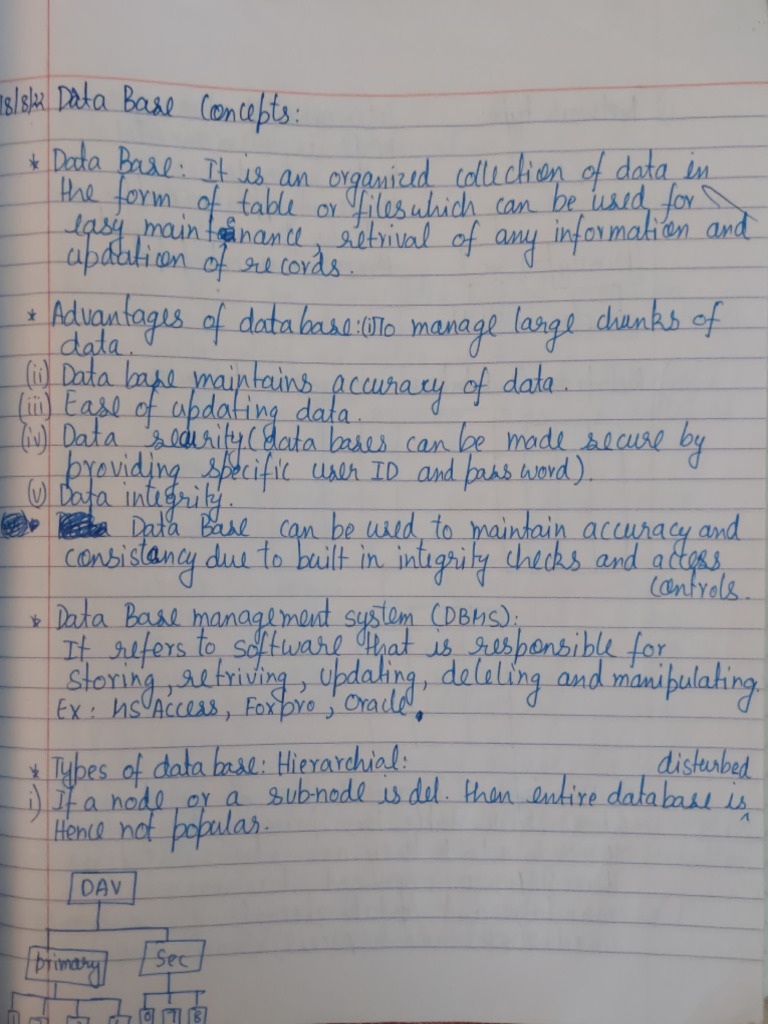 18/8/22 Data Base Concepts:
* Data Base: It is an organized collection of data in
the form of table or files which can be used for
easy maintenance, retrival of any information and
updation of records.
* Advantages of database: (i) To manage large chunks of
data.
(ii) Data base maintains accuracy of data.
(iii) Ease of updating data.
(iv) Data security (data bases can be made secure by
providing specific user ID and pass word).
(v) Data integrity.
Data Base can be used to maintain accuracy and
consistancy due to built in integrity checks and access
controls.
* Data Base management system (DBMS):
It refers to software that is responsible for
storing, retriving, updating, deleling and manipulating.
Ex: MS Access, Foxpro, Oracle.
* Types of data base: Hierarchial: disturbed
i) If a node or a sub-node is del. then entire database is ^
Hence not popular.
DAV
primary Sec
6 7 8